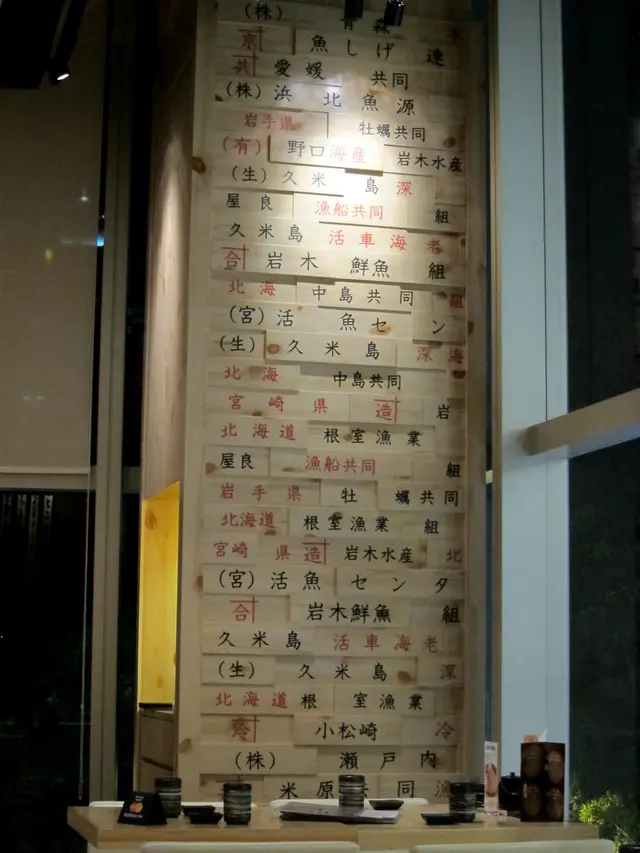 (株) 青森
京 魚しげ 達
共 愛媛 共同
(株)浜 北魚源
岩手県 牡蠣共同
(有) 野口海産 岩木水産
(生)久米 島 深
屋良 漁船共同 組
久米島 活車海老
合 岩木 鮮魚 組
北海 中島共同 組
(宮)活 魚セ ン
(生) 久米島 深海
北海 中島共同
宮崎県 造 岩
北海道 根室漁業
屋良 漁船共同 組
岩手県 牡 蠣共同
北海道 根室漁業 組
宮崎 県造 岩木水産 北
(宮)活魚 センタ
合 岩木鮮魚 組
久米島 活車海老
(生) 久米島 深
北海道根 室漁業
冷 小松崎 冷
(株) 瀬戸内
米原共同 漁